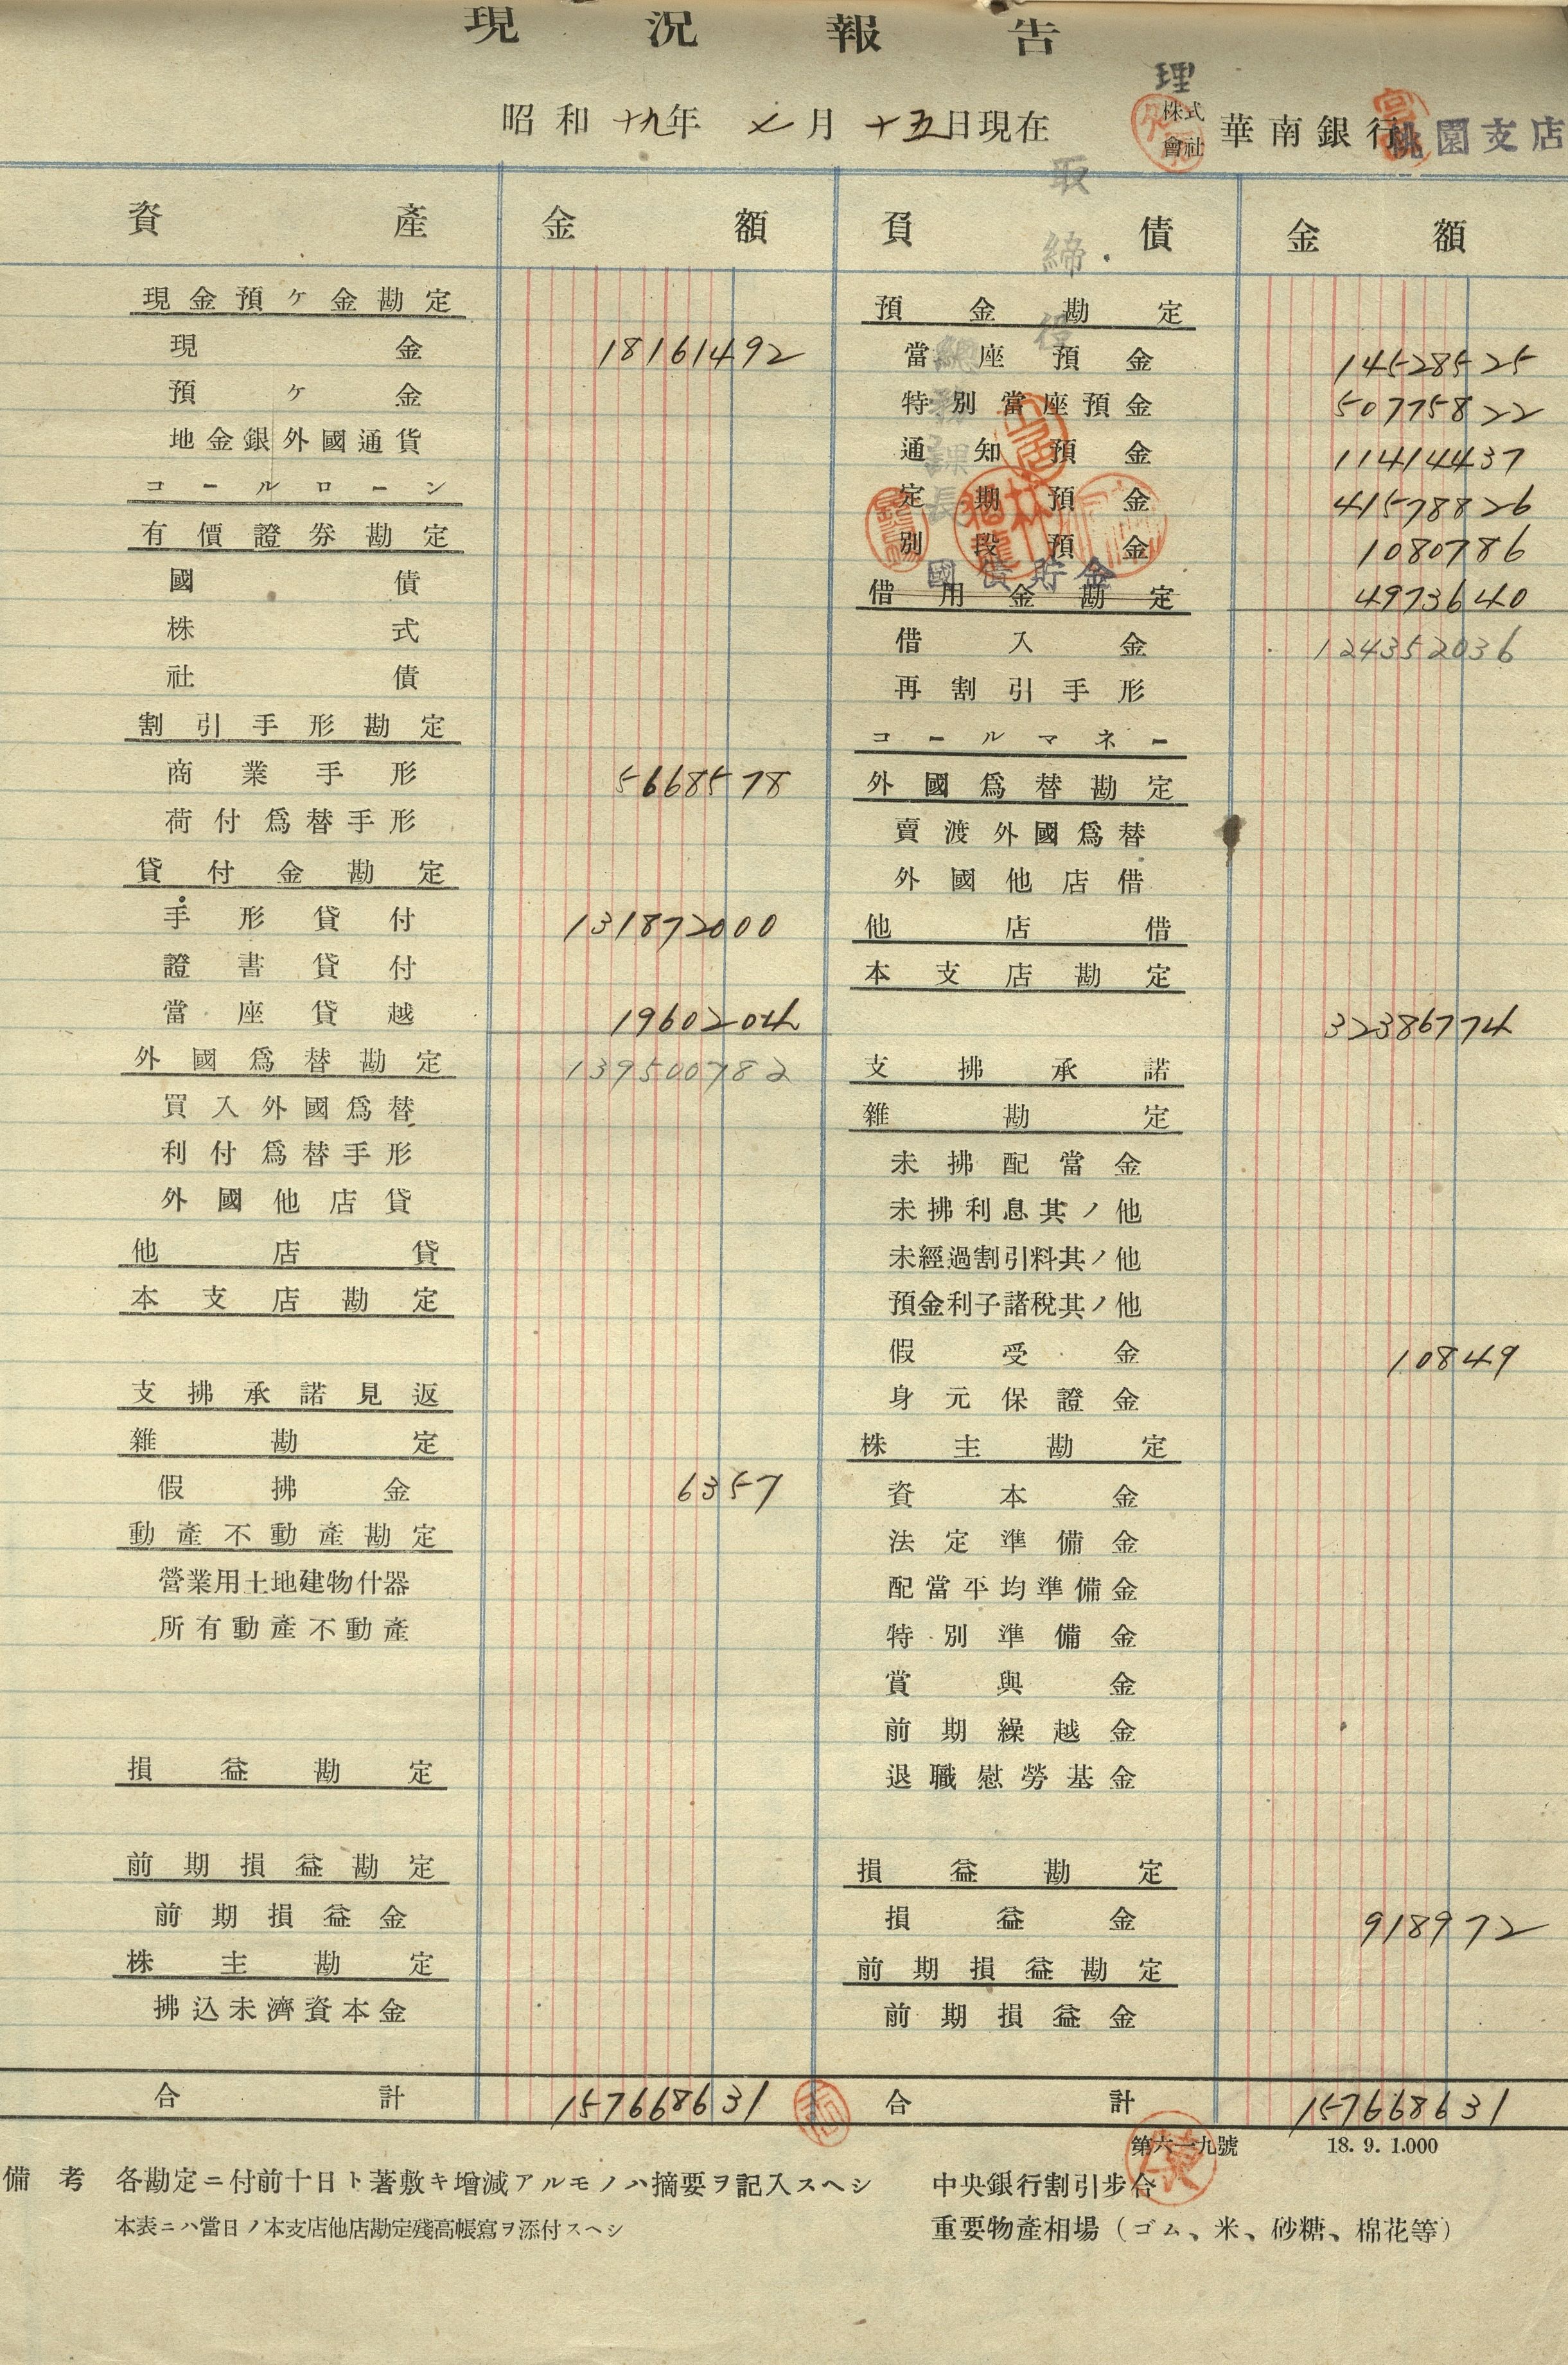 現況報告
昭和十九年七月十五日現在
理
株式會社華南銀行桃園支店
取締役
總務課長
資產 金額 負債 金額
現金預ケ金勘定
現金 18161492
預ケ金
地金銀外國通貨
コールローン
有價證券勘定
國債
株式
社債
割引手形勘定
商業手形 5668578
荷付爲替手形
貸付金勘定
手形貸付 131872000
證書貸付
當座貸越 1960204
外國爲替勘定 139500782
買入外國爲替
利付爲替手形
外國他店貸
他店貸
本支店勘定
支拂承諾見返
雜勘定
假拂金 6357
動產不動產勘定
營業用土地建物什器
所有動產不動產
損益勘定
前期損益勘定
前期損益金
株主勘定
拂込未濟資本金
合計 157668631
預金勘定
當座預金 14528525
特別當座預金 50775822
通知預金 11414437
定期預金 41578826
別段預金 1080786
國債貯金
借用金勘定 4973640
借入金 124352036
再割引手形
コールマネー
外國爲替勘定
賣渡外國爲替
外國他店借
他店借
本支店勘定
32386774
支拂承諾
雜勘定
未拂配當金
未拂利息其ノ他
未經過割引料其ノ他
預金利子諸稅其ノ他
假受金 10849
身元保證金
株主勘定
資本金
法定準備金
配當平均準備金
特別準備金
賞與金
前期繰越金
退職慰勞基金
損益勘定
損益金 918972
前期損益勘定
前期損益金
合計 157668631
第六一九號 18. 9. 1.000
備考 各勘定ニ付前十日ト著敷キ增減アルモノハ摘要ヲ記入スヘシ
本表ニハ當日ノ本支店他店勘定殘高帳寫ヲ添付スヘシ
中央銀行割引步合
重要物產相場（ゴム、米、砂糖、棉花等）